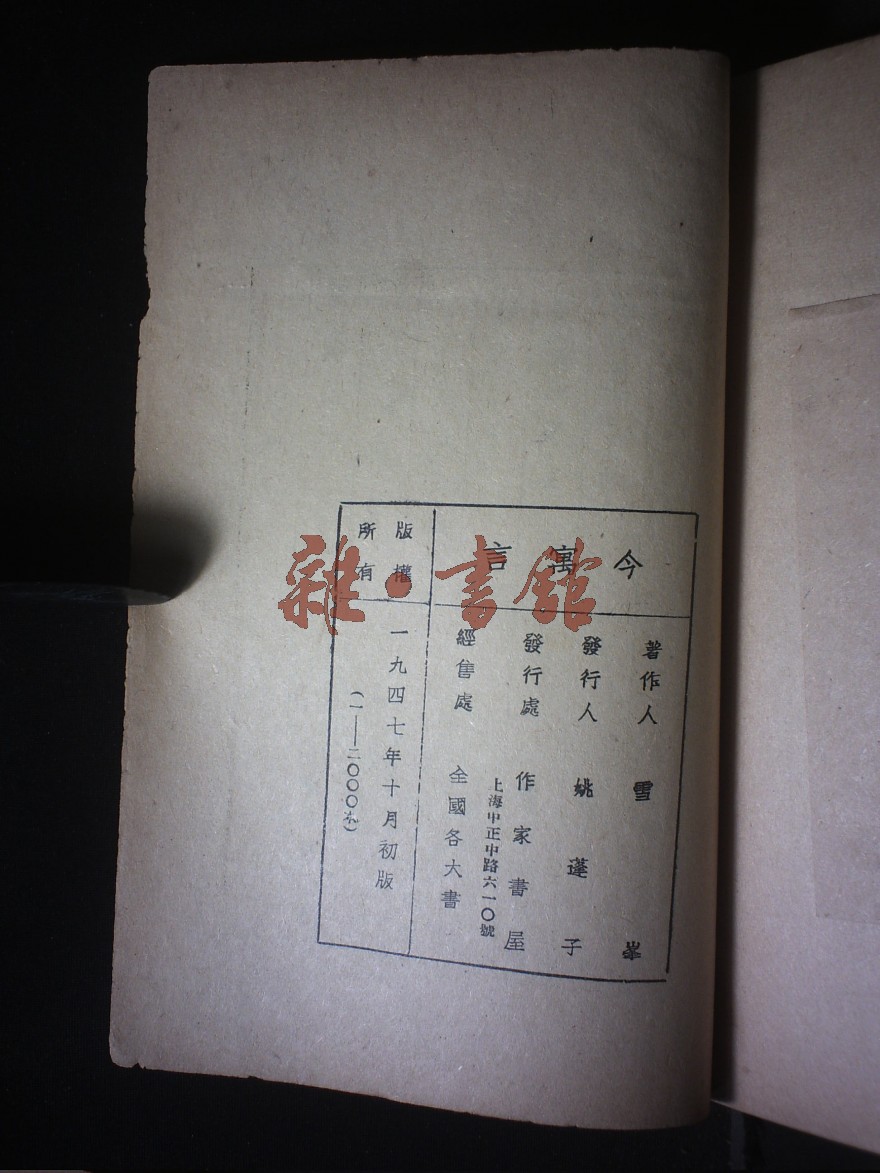 今寓言
著作人 雪峯
發行人 姚蓬子
發行處 作家書屋
上海中正中路六一〇號
經售處 全國各大書
版權
所有
一九四七年十月初版
(一——二〇〇〇)
雜·書館